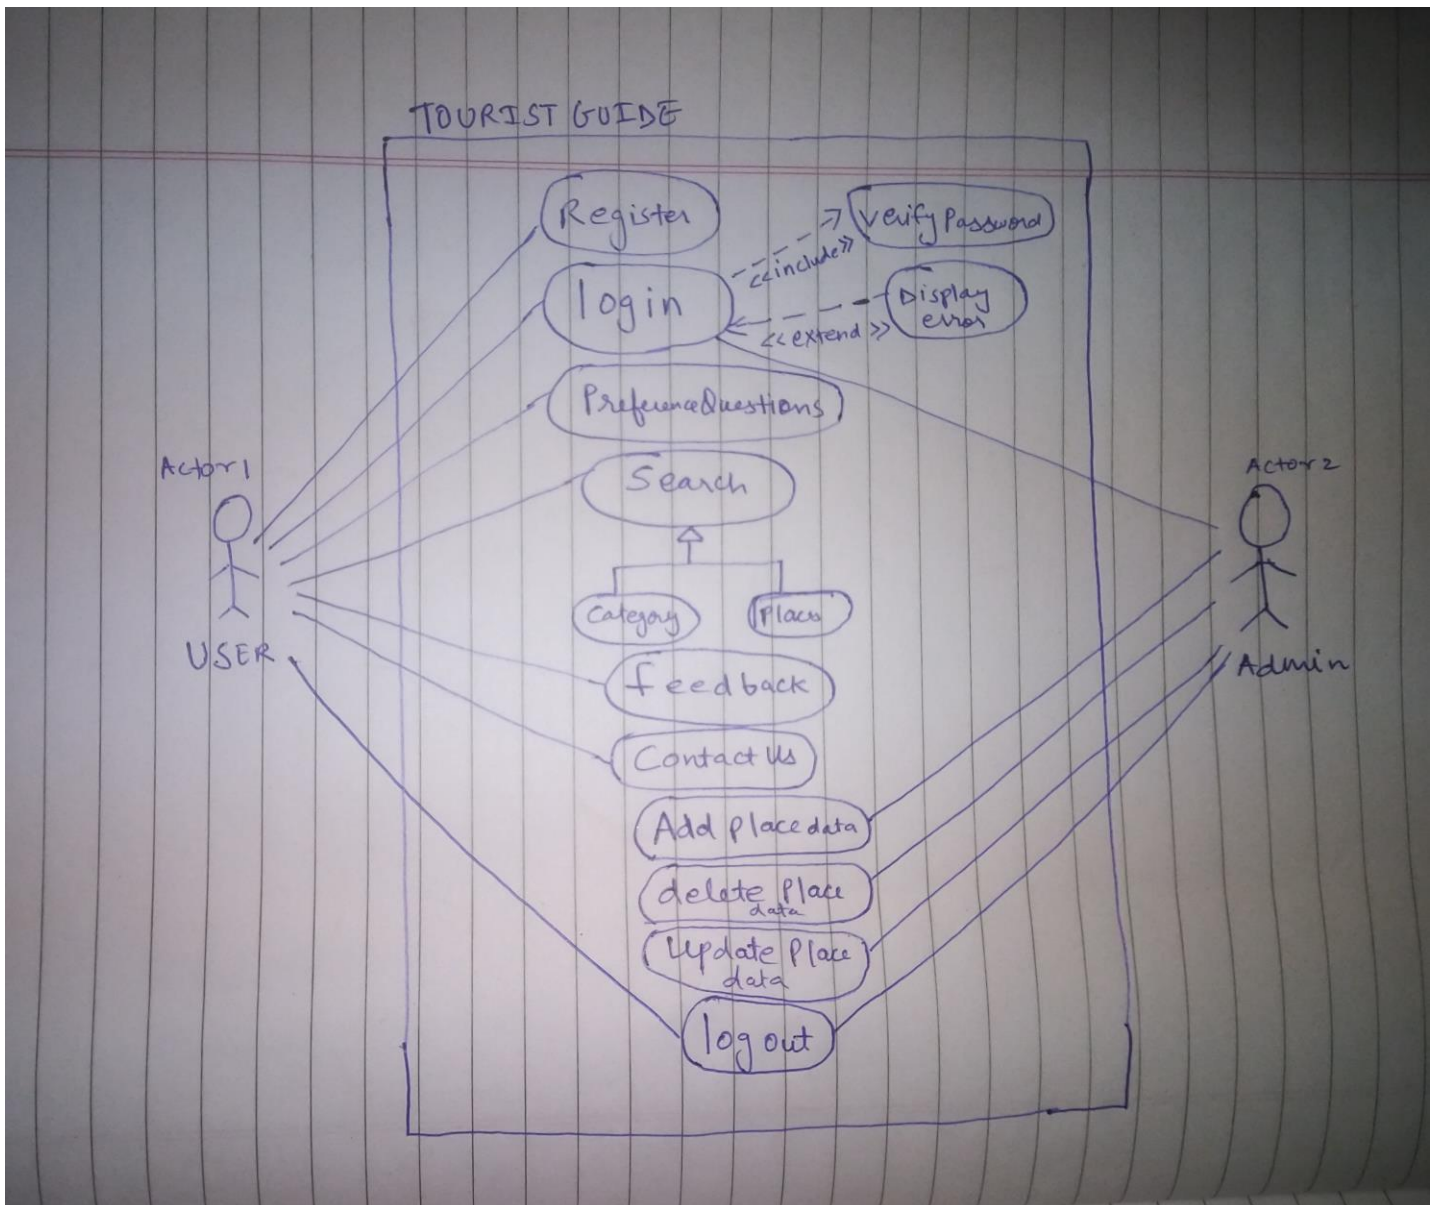 TOURIST GUIDE
Register
Verify Password
<<include>>
login
Display
error
<<extend>>
PreferenceQuestions
Actor1
Search
Actor2
Category
Place
USER
Admin
feedback
Contact Us
Add place data
delete Place
data
Update Place
data
logout